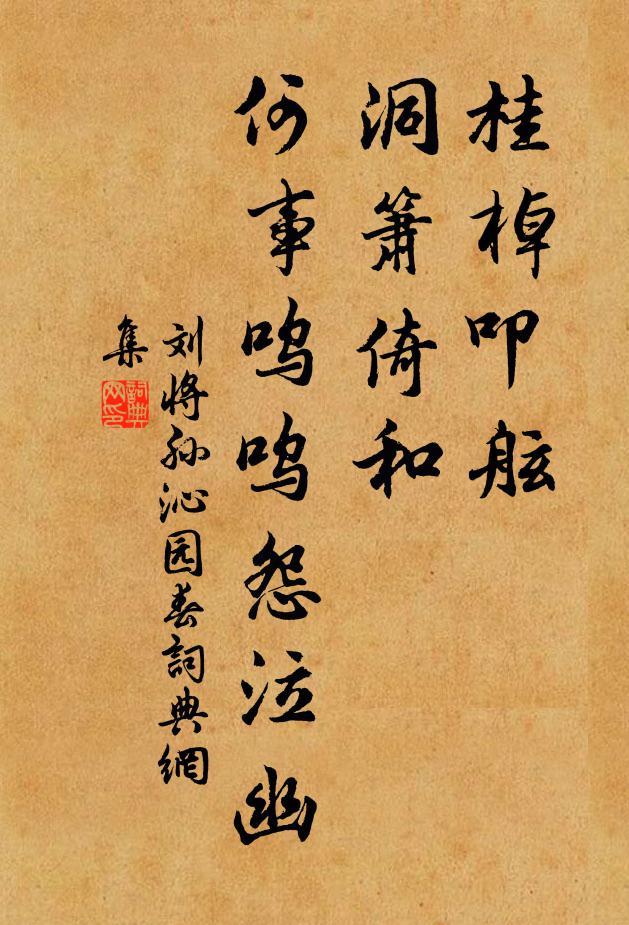 桂棹叩舷
洞箫倚和
何事呜呜怨泣幽
刘将孙沁园春詞典網
集
詞典网印